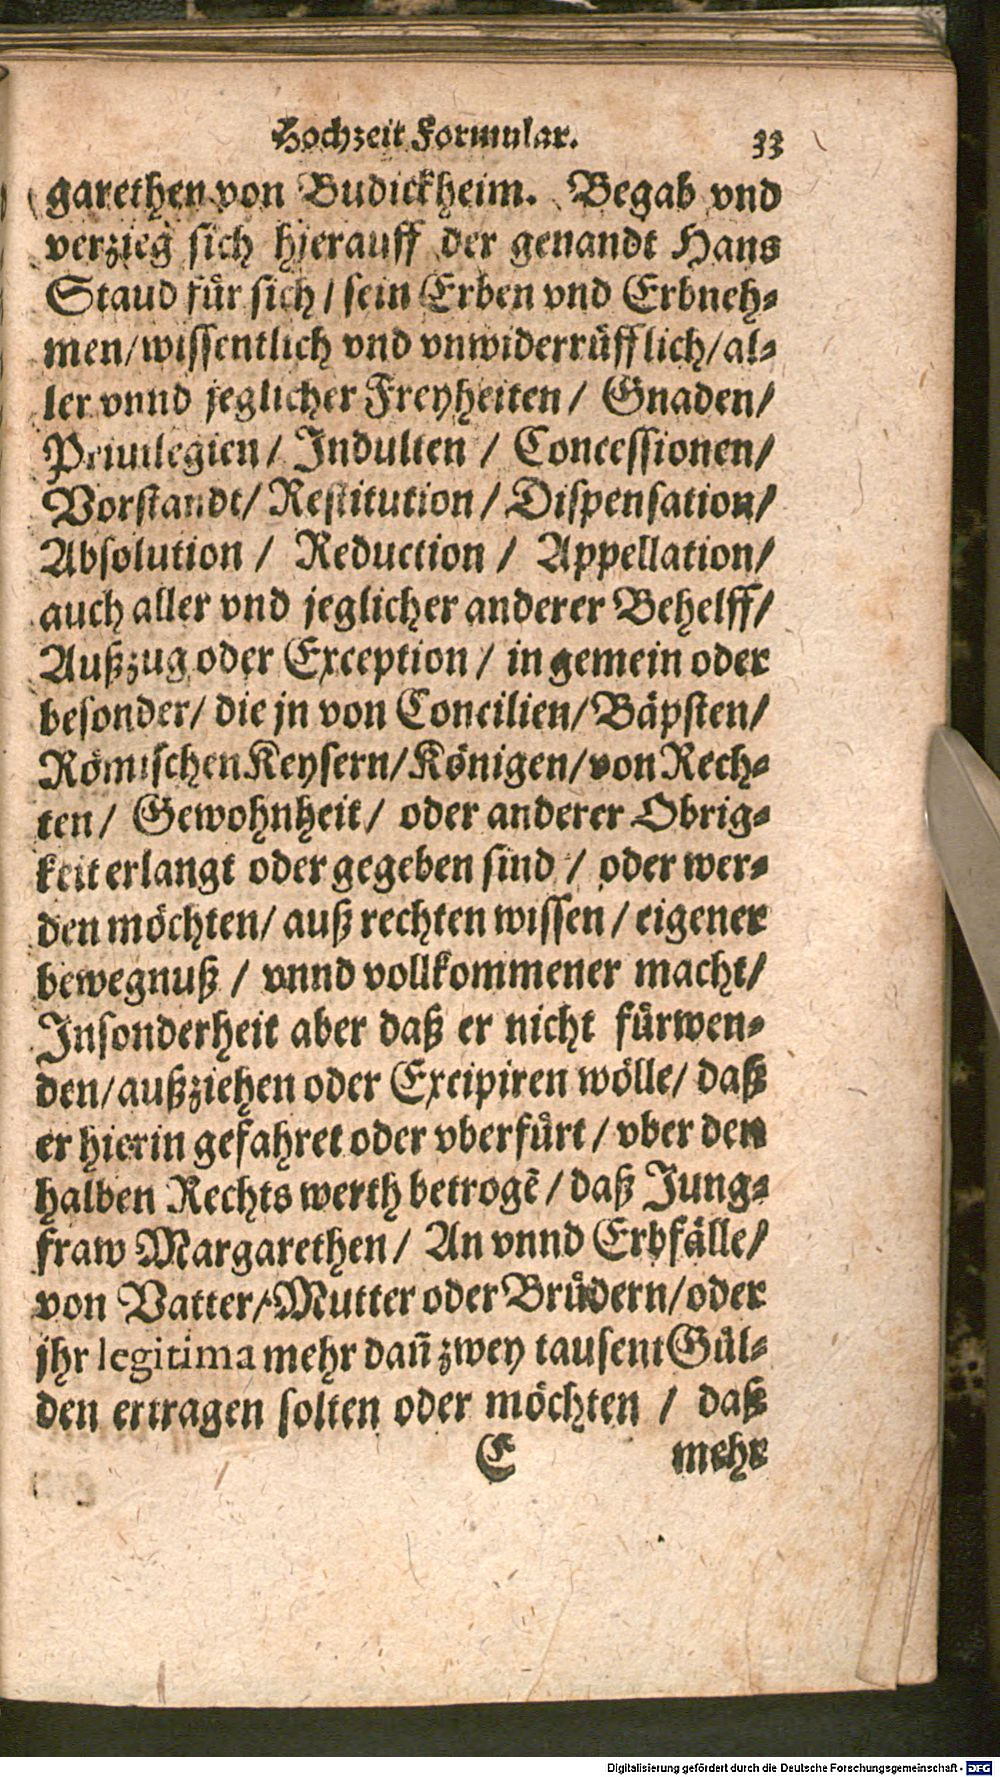 Hochzeit Formular. 33
garethen von Budickheim. Begab vnd
verzieg sich hierauff der genandt Hans
Staud für sich / sein Erben vnd Erbneh-
men/wissentlich vnd vnwiderrüfflich/al-
ler vnnd jeglicher Freyheiten / Gnaden/
Priuilegien / Indulten / Concessionen/
Vorstandt/ Restitution / Dispensation/
Absolution / Reduction / Appellation/
auch aller vnd jeglicher anderer Behelff/
Außzug oder Exception / in gemein oder
besonder/ die jn von Concilien/ Bäpsten/
Römischen Keysern/Königen/von Rech-
ten / Gewohnheit / oder anderer Obrig-
keit erlangt oder gegeben sind / oder wer-
den möchten/ auß rechten wissen / eigener
bewegnuß / vnnd vollkommener macht/
Insonderheit aber daß er nicht fürwen-
den/außziehen oder Excipiren wölle/ daß
er hierin gefahret oder vberfürt / vber den
halben Rechts werth betrogē / daß Jung-
fraw Margarethen / An vnnd Erbfälle/
von Vatter/Mutter oder Brüdern/oder
jhr legitima mehr dañ zwey tausent Gül-
den ertragen solten oder möchten / daß
C mehr
Digitalisierung gefördert durch die Deutsche Forschungsgemeinschaft - DFG